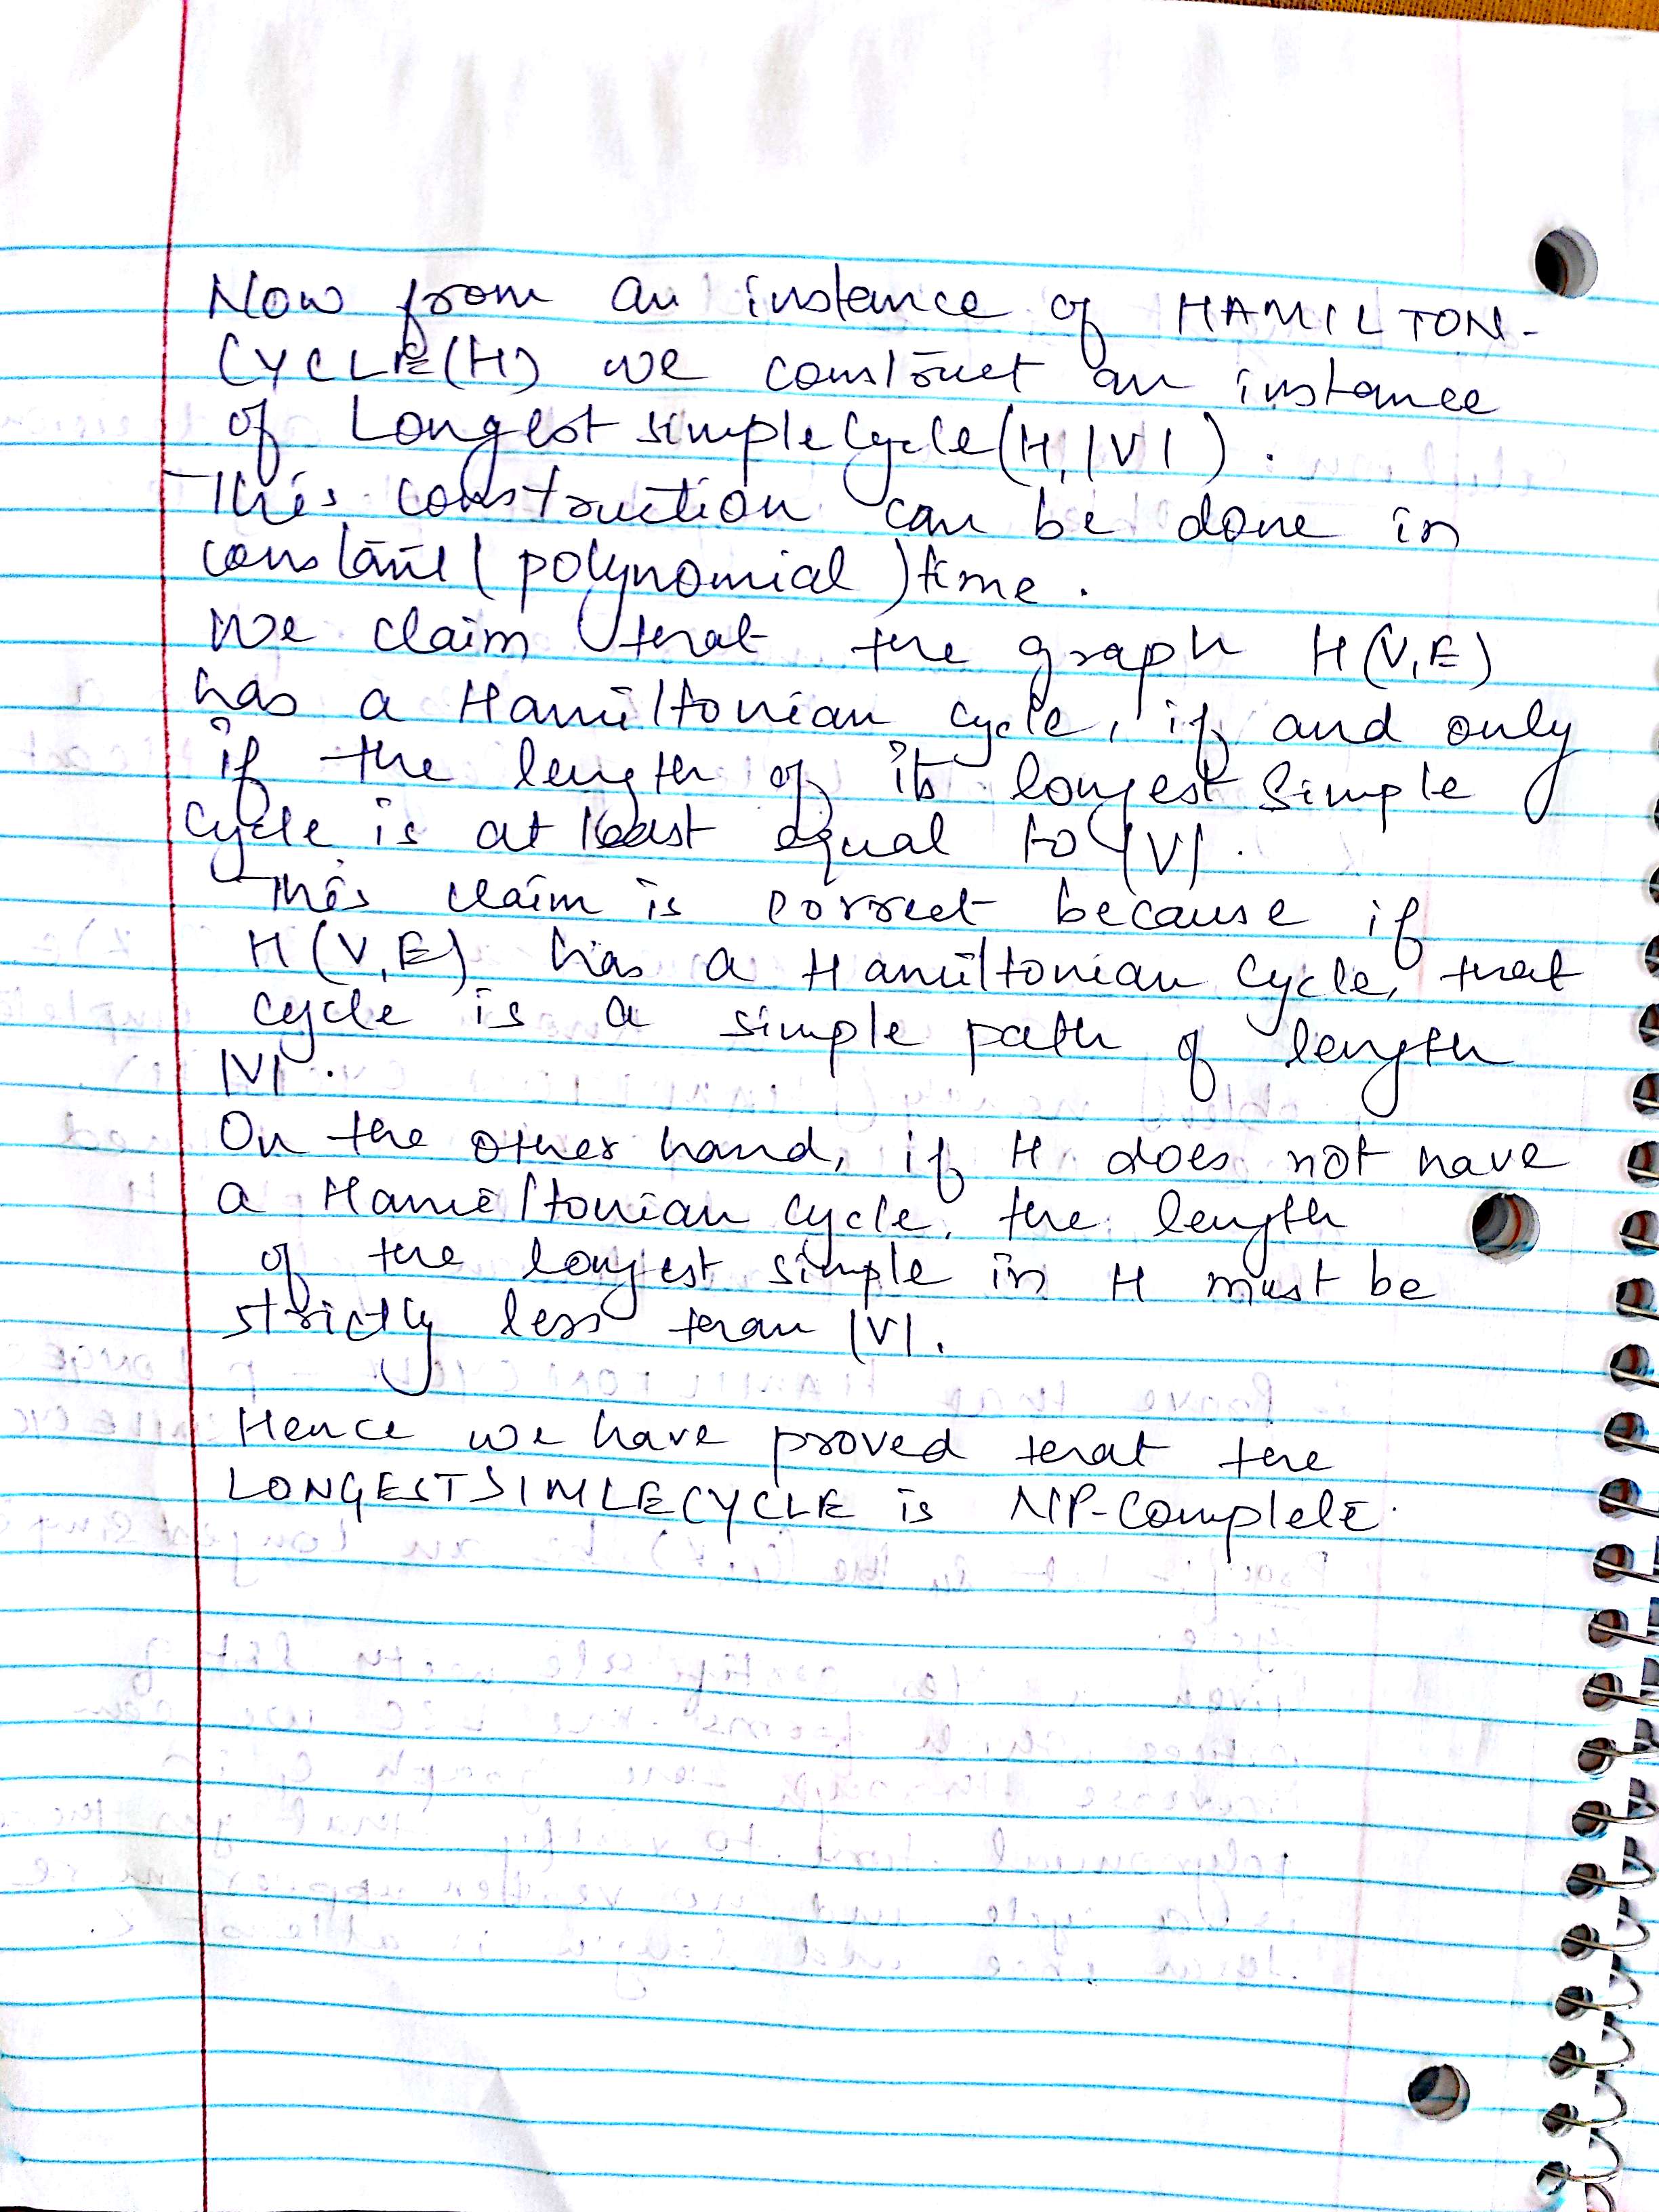 Now from an instance of HAMILTON-
CYCLE(H) we construct an instance
of Longest simple Cycle(H,|V|).
This construction can be done in
constant (polynomial) time.
We claim that the graph H(V,E)
has a Hamiltonian cycle, if and only
if the length of its longest simple
cycle is at least equal to |V|.
This claim is correct because if
H(V,E) has a Hamiltonian cycle, that
cycle is a simple path of length
|V|.
On the other hand, if H does not have
a Hamiltonian cycle, the length
of the longest simple in H must be
strictly less than |V|.
Hence we have proved that the
LONGESTSIMLECYCLE is NP-Complete.